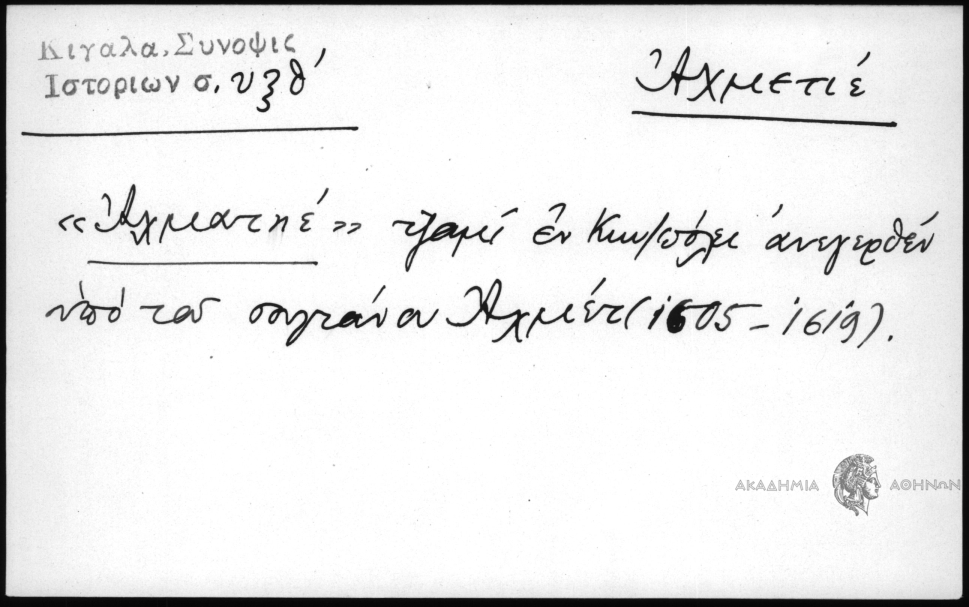 Κιγαλα, Συνοψις
Ιστοριων σ. υξθ'
Ἀχμετιέ
«Ἀχματιέ» τζαμί ἐν Κων/πόλει ἀνεγερθέν
ὑπό τοῦ σουλτάνου Ἀχμέτ (1605 – 1619).
ΑΚΑΔΗΜΙΑ ΑΘΗΝΩΝ